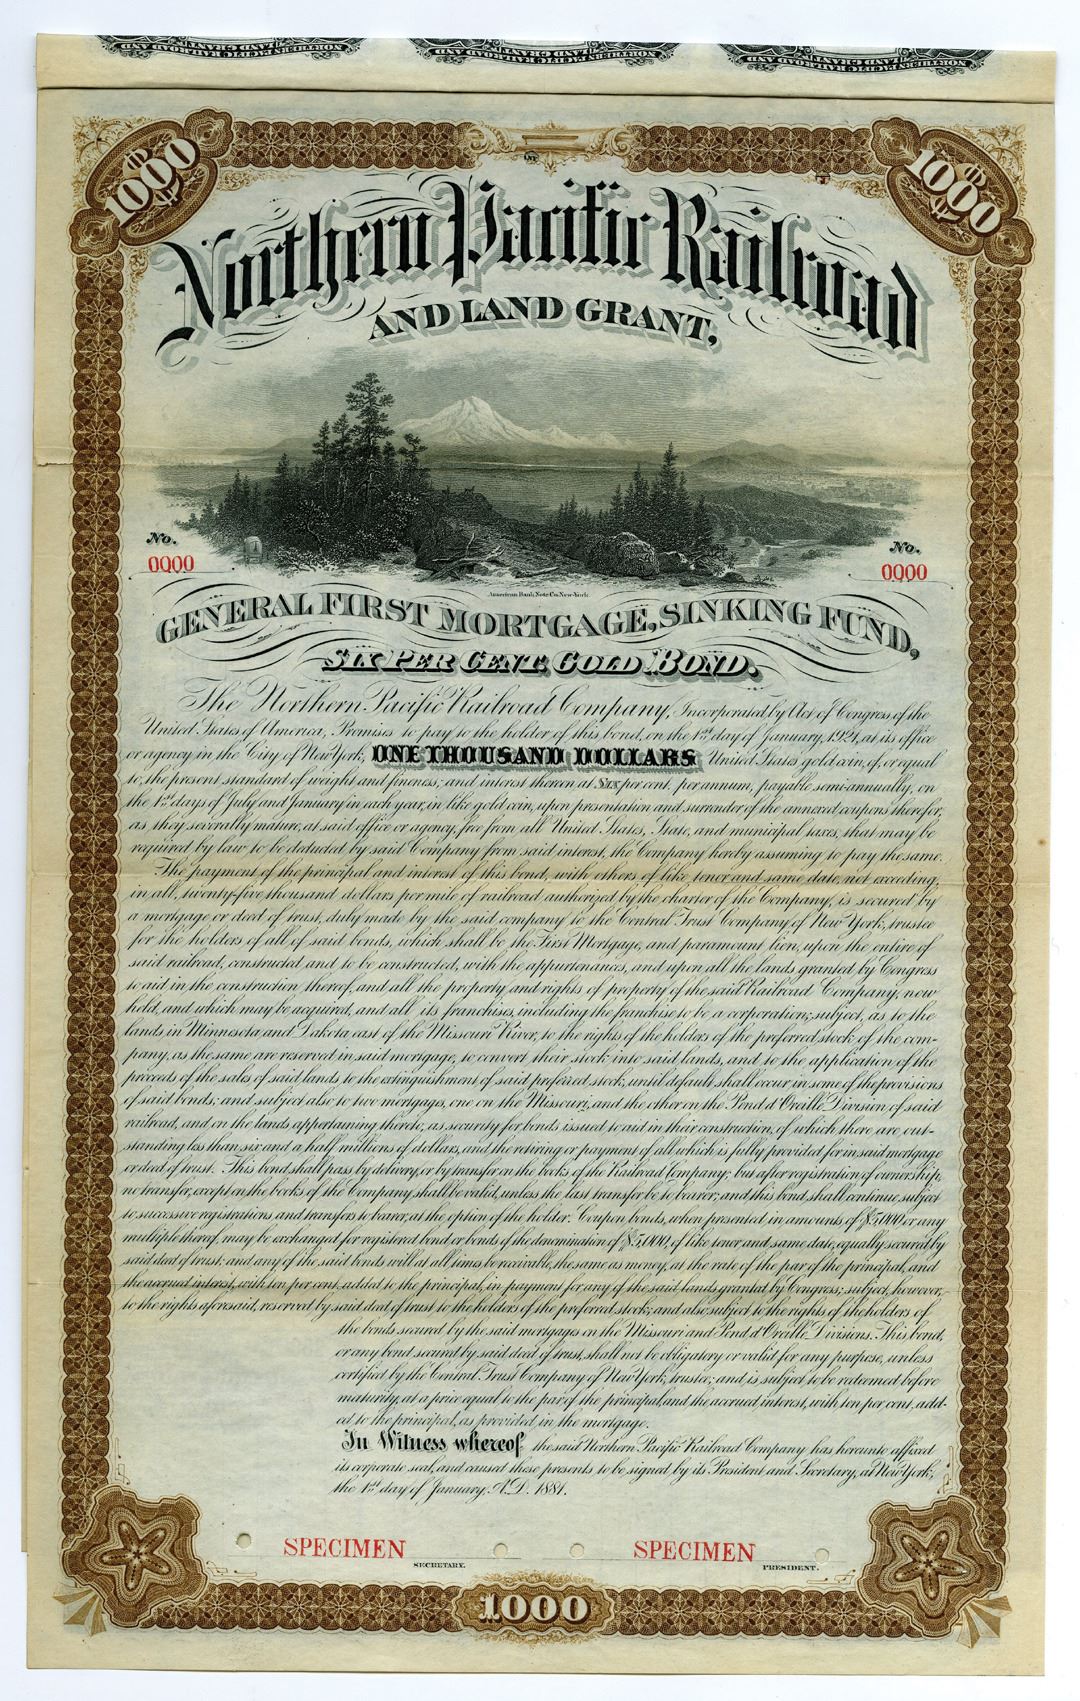 NORTHERN PACIFIC RAILROAD AND LAND GRANT
1000 1000
Northern Pacific Railroad
AND LAND GRANT,
No. No.
0000 0000
American Bank Note Co. New-York.
GENERAL FIRST MORTGAGE, SINKING FUND,
SIX PER CENT. GOLD BOND.
The Northern Pacific Railroad Company, Incorporated by Act of Congress of the
United States of America, Promises to pay to the holder of this bond, on the 1st day of January, 1921, at its office
or agency in the City of New York, ONE THOUSAND DOLLARS United States gold coin, of, or equal
to, the present standard of weight and fineness, and interest thereon at Six per cent. per annum, payable semi-annually, on
the 1st days of July and January in each year, in like gold coin, upon presentation and surrender of the annexed coupons therefor,
as they severally mature, at said office or agency, free from all United States, State, and municipal taxes, that may be
required by law to be deducted by said Company from said interest, the Company hereby assuming to pay the same.
The payment of the principal and interest of this bond, with others of like tenor and same date, not exceeding,
in all, twenty-five thousand dollars per mile of railroad authorized by the charter of the Company, is secured by
a mortgage or deed of trust, duly made by the said company to the Central Trust Company of New York, trustee
for the holders of all of said bonds, which shall be the First Mortgage, and paramount lien, upon the entire of
said railroad, constructed and to be constructed, with the appurtenances, and upon all the lands granted by Congress
to aid in the construction thereof, and all the property and rights of property of the said Railroad Company, now
held, and which may be acquired, and all its franchises, including the franchise to be a corporation; subject, as to the
lands in Minnesota and Dakota east of the Missouri River, to the rights of the holders of the preferred stock of the com-
pany, as the same are reserved in said mortgage, to convert their stock into said lands, and to the application of the
proceeds of the sales of said lands to the extinguishment of said preferred stock, until default shall occur in some of the provisions
of said bonds; and subject also to two mortgages, one on the Missouri, and the other on the Pend d'Oreille Division of said
railroad, and on the lands appertaining thereto, as security for bonds issued to aid in their construction, of which there are out-
standing less than six and a half millions of dollars, and the retiring or payment of all which is fully provided for in said mortgage
or deed of trust. This bond shall pass by delivery, or by transfer on the books of the Railroad Company; but after registration of ownership,
no transfer, except on the books of the Company, shall be valid, unless the last transfer be to bearer; and this bond shall continue subject
to successive registrations and transfers to bearer, at the option of the holder. Coupon bonds, when presented in amounts of $5,000 or any
multiple thereof, may be exchanged for registered bond or bonds of the denomination of $5,000, of like tenor and same date, equally secured by
said deed of trust: and any of the said bonds will at all times be receivable, the same as money, at the rate of the par of the principal, and
the accrued interest, with ten per cent. added to the principal, in payment for any of the said lands granted by Congress; subject, however,
to the rights aforesaid, reserved by said deed of trust to the holders of the preferred stock; and also, subject to the rights of the holders of
the bonds secured by the said mortgages on the Missouri and Pend d'Oreille Divisions. This bond,
or any bond secured by said deed of trust, shall not be obligatory or valid for any purpose, unless
certified by the Central Trust Company of New York, trustee; and is subject to be redeemed before
maturity, at a price equal to the par of the principal, and the accrued interest, with ten per cent. add-
ed to the principal, as provided in the mortgage.
In Witness whereof the said Northern Pacific Railroad Company has hereunto affixed
its corporate seal, and caused these presents to be signed by its President and Secretary, at New York,
the 1st day of January, A.D. 1881.
SPECIMEN SPECIMEN
SECRETARY. PRESIDENT.
1000